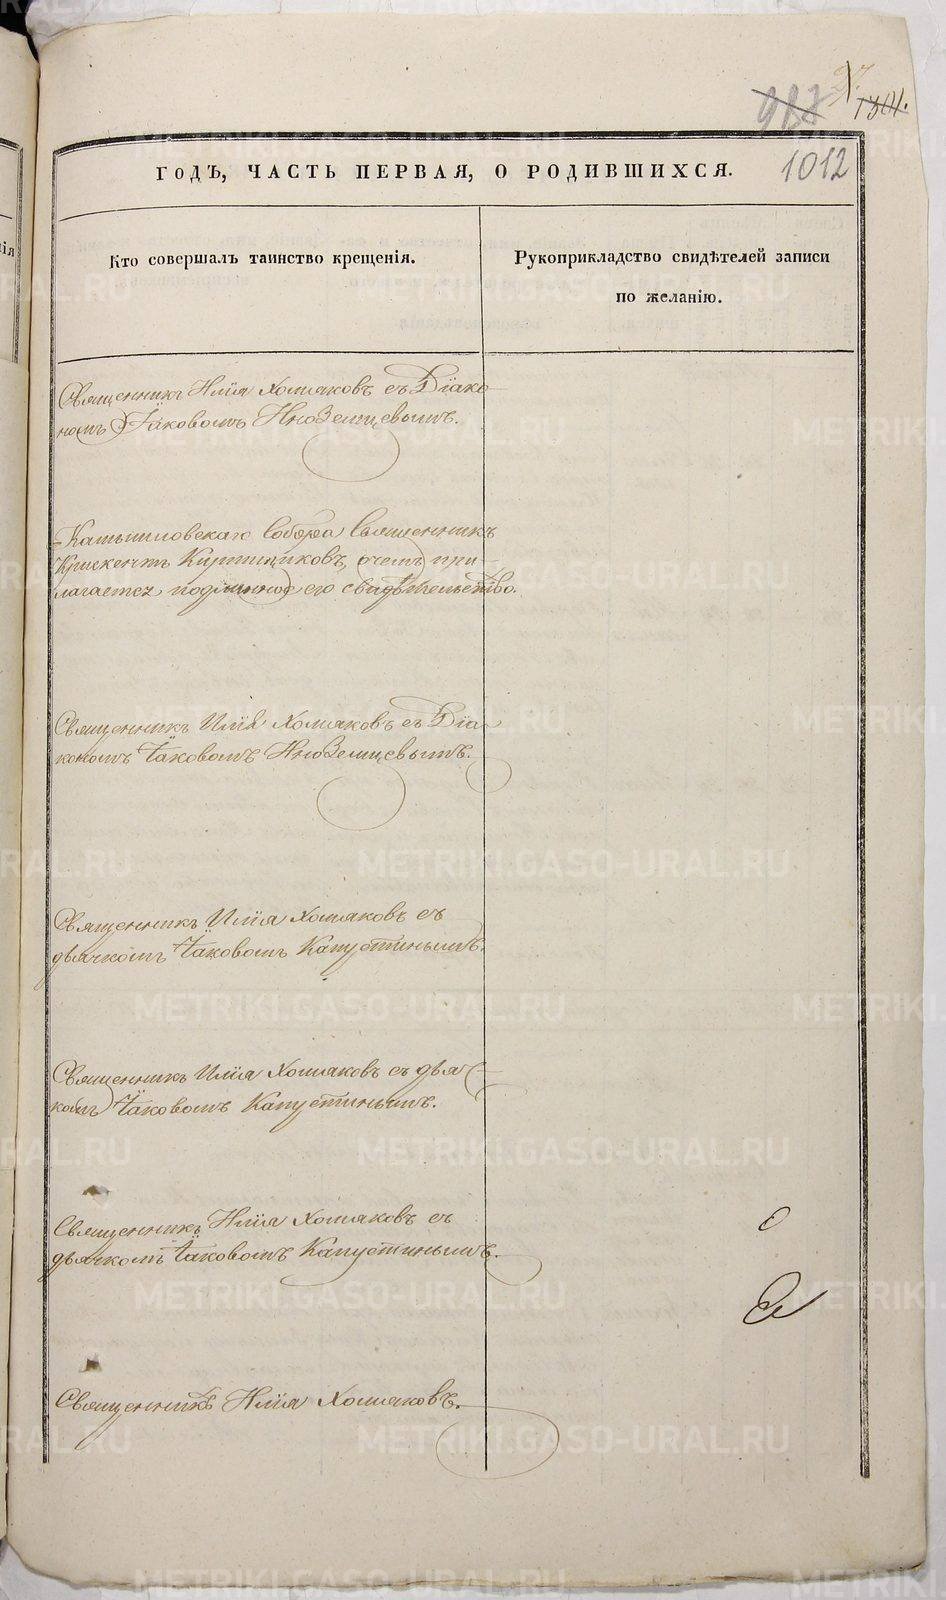 27.
987
1304.
1012
ГОДЪ, ЧАСТЬ ПЕРВАЯ, О РОДИВШИХСЯ.
Кто совершалъ таинство крещенія.
Рукоприкладство свидѣтелей записи
по желанію.
Священникъ Илія Хомяковъ съ Діако
номъ Іаковомъ Иноземцевымъ.
Камышловскаго Собора Священникъ
Крискентъ Кирпищиковъ, о чемъ при
лагается подлинное его свидѣтельство.
Священникъ Илія Хомяковъ съ Діа
кономъ Іаковомъ Иноземцевымъ.
Священникъ Илія Хомяковъ съ
дьячкомъ Іаковомъ Капустинымъ.
Священникъ Илія Хомяковъ съ дьяч
комъ Іаковомъ Капустинымъ.
Священникъ Илія Хомяковъ съ
дьячкомъ Іаковомъ Капустинымъ.
Священникъ Илія Хомяковъ.
METRIKI.GASO-URAL.RU